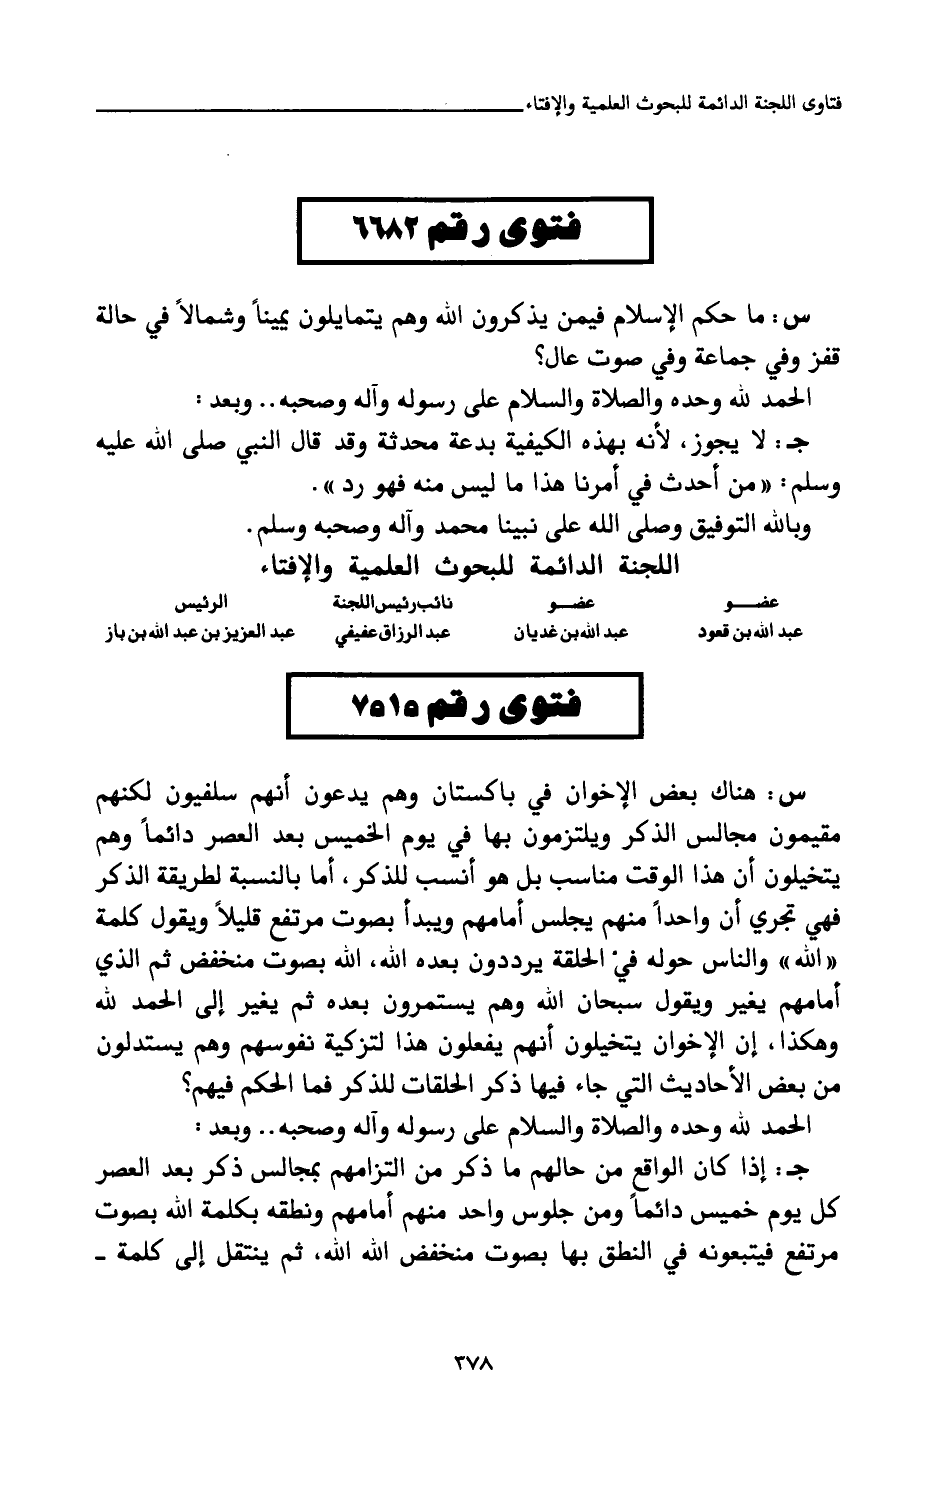 فتاوى اللجنة الدائمة للبحوث العلمية والإفتاء
فتوى رقم ٦٦٨٢
س: ما حكم الإسلام فيمن يذكرون الله وهم يتمايلون يميناً وشمالاً في حالة
قفز وفي جماعة وفي صوت عال؟
الحمد لله وحده والصلاة والسلام على رسوله وآله وصحبه.. وبعد :
جـ: لا يجوز، لأنه بهذه الكيفية بدعة محدثة وقد قال النبي صلى الله عليه
وسلم: «من أحدث في أمرنا هذا ما ليس منه فهو رد».
وبالله التوفيق وصلى الله على نبينا محمد وآله وصحبه وسلم.
اللجنة الدائمة للبحوث العلمية والإفتاء
عضــو عضــو نائب رئيس اللجنة الرئيس
عبد الله بن قعود عبد الله بن غديان عبد الرزاق عفيفي عبد العزيز بن عبد الله بن باز
فتوى رقم ٧٥١٥
س: هناك بعض الإخوان في باكستان وهم يدعون أنهم سلفيون لكنهم
مقيمون مجالس الذكر ويلتزمون بها في يوم الخميس بعد العصر دائماً وهم
يتخيلون أن هذا الوقت مناسب بل هو أنسب للذكر، أما بالنسبة لطريقة الذكر
فهي تجري أن واحداً منهم يجلس أمامهم ويبدأ بصوت مرتفع قليلاً ويقول كلمة
«الله» والناس حوله في الحلقة يرددون بعده الله، الله بصوت منخفض ثم الذي
أمامهم يغير ويقول سبحان الله وهم يستمرون بعده ثم يغير إلى الحمد لله
وهكذا، إن الإخوان يتخيلون أنهم يفعلون هذا لتزكية نفوسهم وهم يستدلون
من بعض الأحاديث التي جاء فيها ذكر الحلقات للذكر فما الحكم فيهم؟
الحمد لله وحده والصلاة والسلام على رسوله وآله وصحبه.. وبعد :
جـ: إذا كان الواقع من حالهم ما ذكر من التزامهم بمجالس ذكر بعد العصر
كل يوم خميس دائماً ومن جلوس واحد منهم أمامهم ونطقه بكلمة الله بصوت
مرتفع فيتبعونه في النطق بها بصوت منخفض الله الله، ثم ينتقل إلى كلمة -
٣٧٨